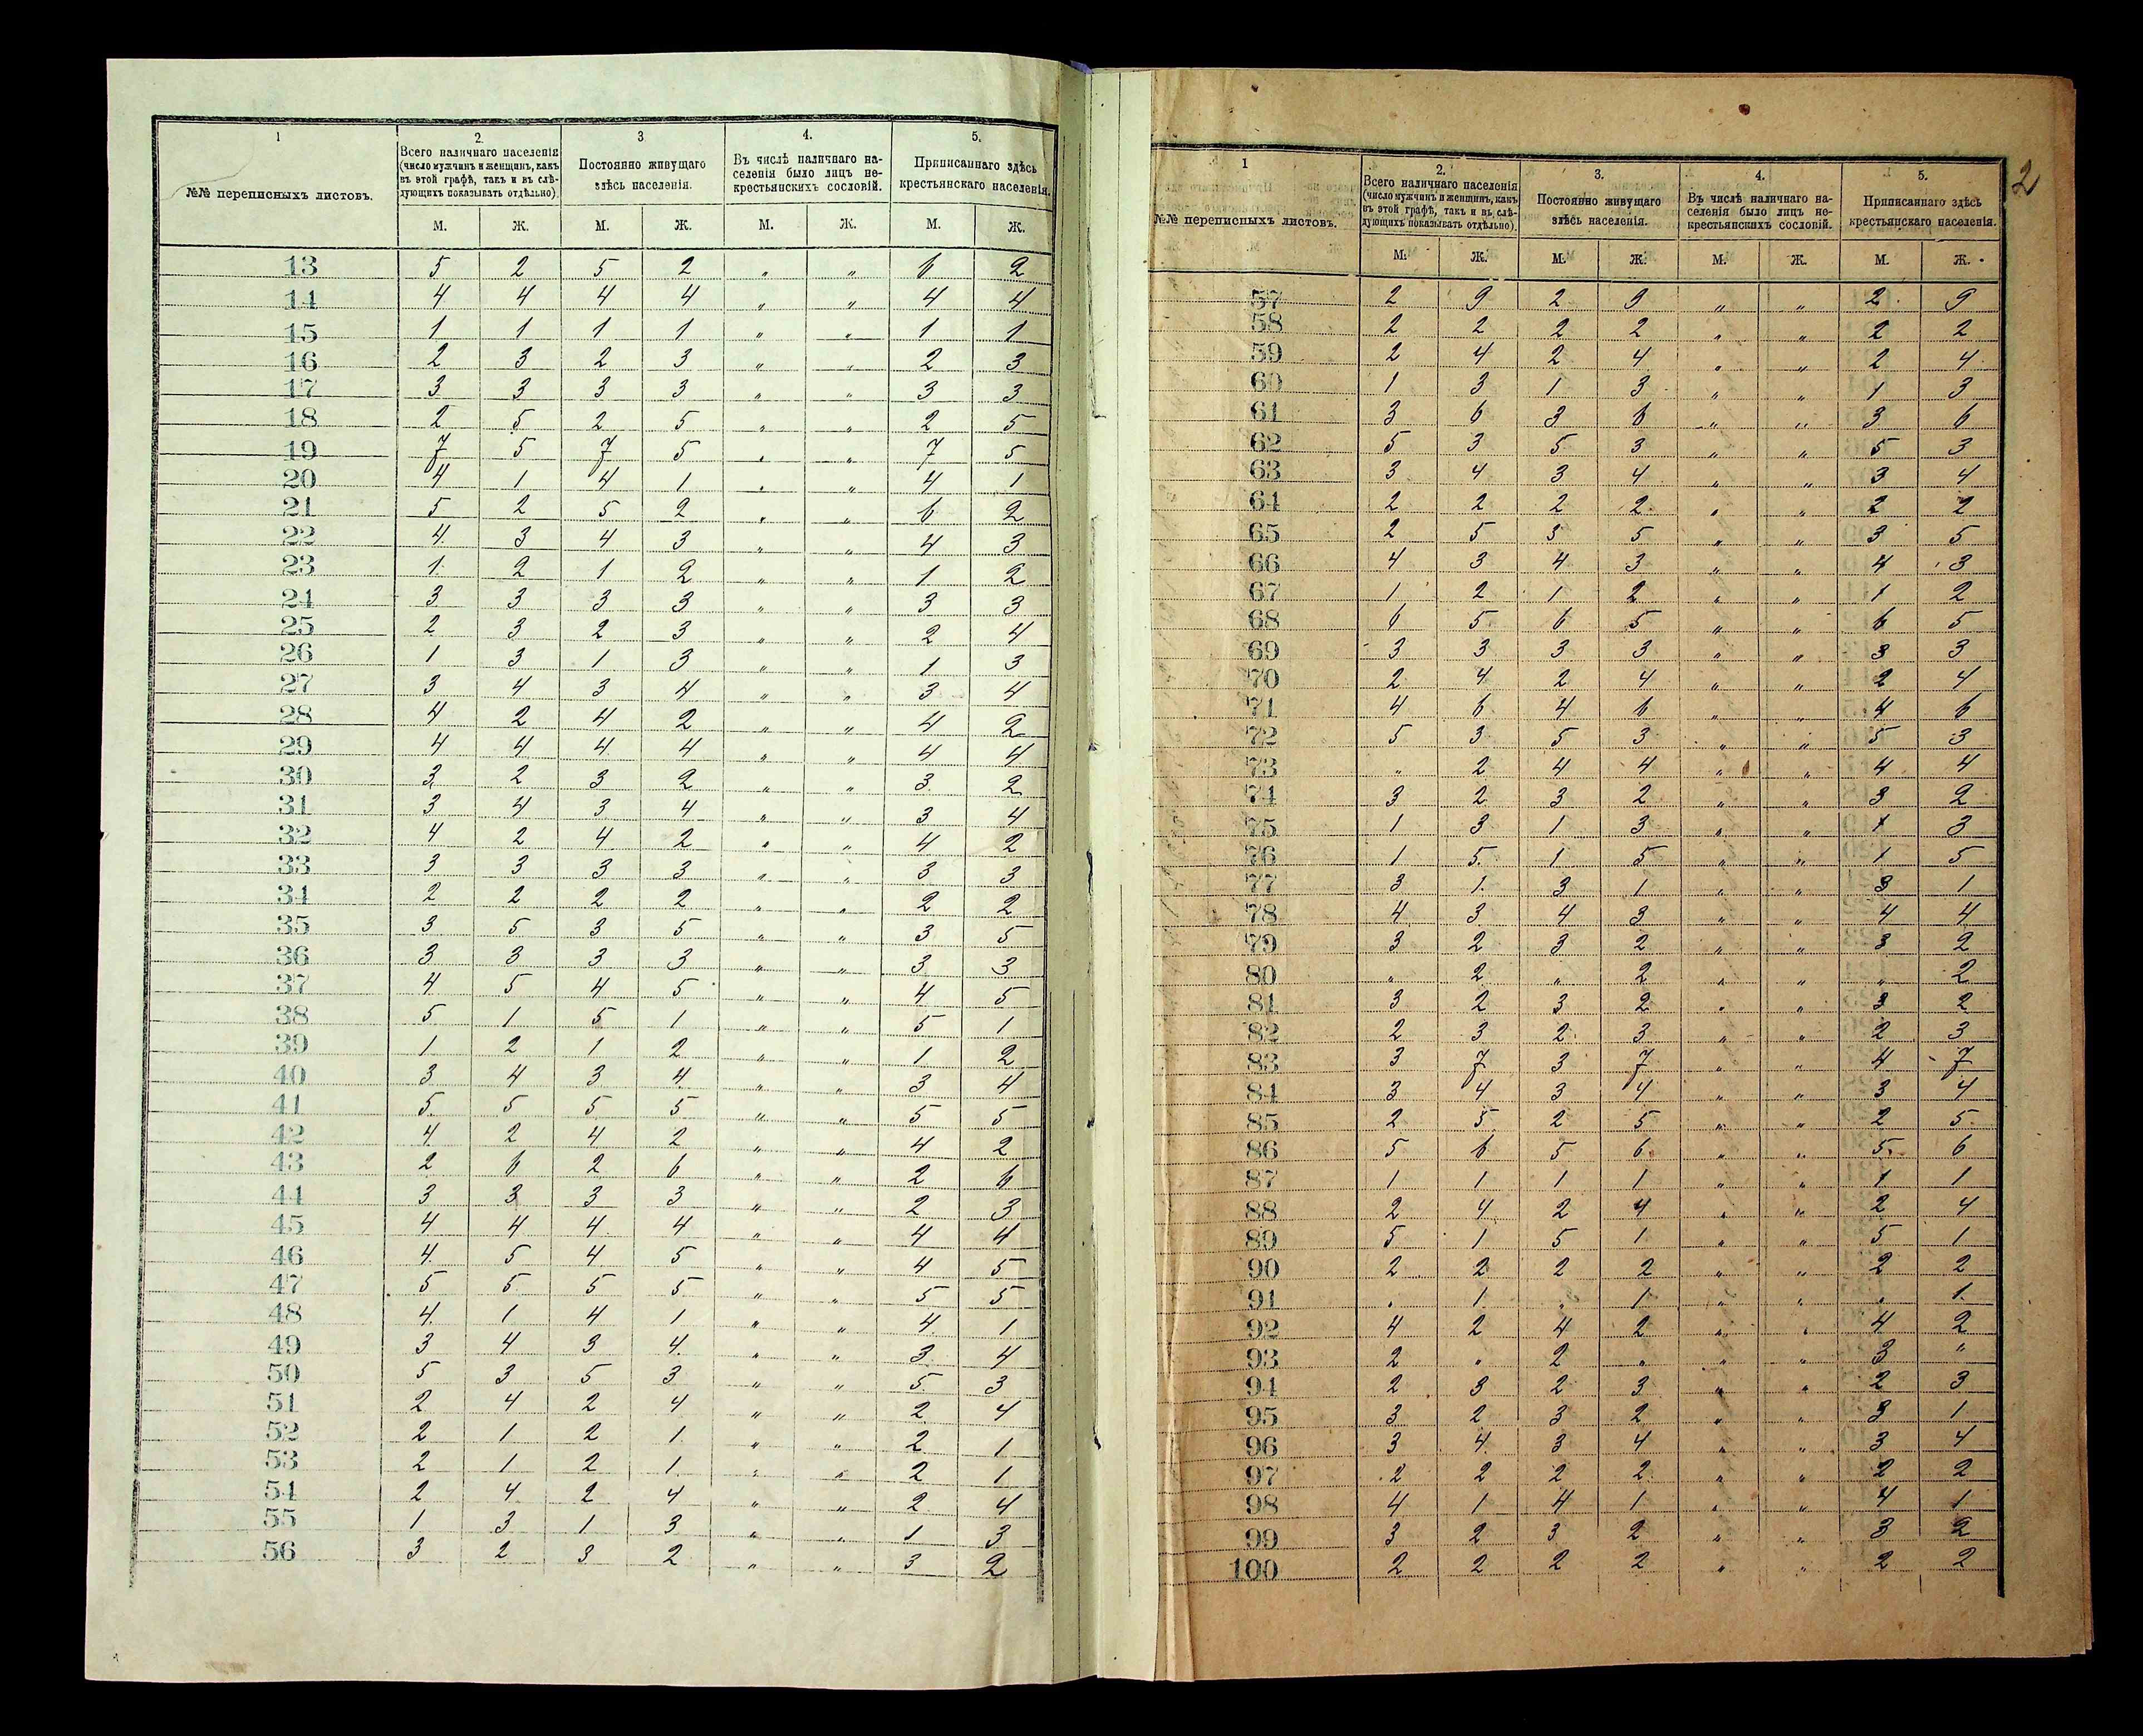 1 2. 3. 4. 5.
№№ переписныхъ листовъ. Всего наличнаго населенія (число мужчинъ и женщинъ, какъ въ этой графѣ, такъ и въ слѣдующихъ показывать отдѣльно). Постоянно живущаго здѣсь населенія. Въ числѣ наличнаго населенія было лицъ некрестьянскихъ сословій. Приписаннаго здѣсь крестьянскаго населенія.
М. Ж. М. Ж. М. Ж. М. Ж.
13 5 2 5 2 „ „ 6 2
14 4 4 4 4 „ „ 4 4
15 1 1 1 1 „ „ 1 1
16 2 3 2 3 „ „ 2 3
17 3 3 3 3 „ „ 3 3
18 2 5 2 5 „ „ 2 5
19 7 5 7 5 „ „ 7 5
20 4 1 4 1 „ „ 4 1
21 5 2 5 2 „ „ 6 2
22 4 3 4 3 „ „ 4 3
23 1 2 1 2 „ „ 1 2
24 3 3 3 3 „ „ 3 3
25 2 3 2 3 „ „ 2 4
26 1 3 1 3 „ „ 1 3
27 3 4 3 4 „ „ 3 4
28 4 2 4 2 „ „ 4 2
29 4 4 4 4 „ „ 4 4
30 3 2 3 2 „ „ 3 2
31 3 4 3 4 „ „ 3 4
32 4 2 4 2 „ „ 4 2
33 3 3 3 3 „ „ 3 3
34 2 2 2 2 „ „ 2 2
35 3 5 3 5 „ „ 3 5
36 3 3 3 3 „ „ 3 3
37 4 5 4 5 „ „ 4 5
38 5 1 5 1 „ „ 5 1
39 1 2 1 2 „ „ 1 2
40 3 4 3 4 „ „ 3 4
41 5 5 5 5 „ „ 5 5
42 4 2 4 2 „ „ 4 2
43 2 6 2 6 „ „ 2 6
44 3 3 3 3 „ „ 2 3
45 4 4 4 4 „ „ 4 4
46 4 5 4 5 „ „ 4 5
47 5 5 5 5 „ „ 5 5
48 4 1 4 1 „ „ 4 1
49 3 4 3 4 „ „ 3 4
50 5 3 5 3 „ „ 5 3
51 2 4 2 4 „ „ 2 4
52 2 1 2 1 „ „ 2 1
53 2 1 2 1 „ „ 2 1
54 2 4 2 4 „ „ 2 4
55 1 3 1 3 „ „ 1 3
56 3 2 3 2 „ „ 3 2
2
1 2. 3. 4. 5.
№№ переписныхъ листовъ. Всего наличнаго населенія (число мужчинъ и женщинъ, какъ въ этой графѣ, такъ и въ слѣдующихъ показывать отдѣльно). Постоянно живущаго здѣсь населенія. Въ числѣ наличнаго населенія было лицъ некрестьянскихъ сословій. Приписаннаго здѣсь крестьянскаго населенія.
М. Ж. М. Ж. М. Ж. М. Ж.
57 2 9 2 9 „ „ 2 9
58 2 2 2 2 „ „ 2 2
59 2 4 2 4 „ „ 2 4
60 1 3 1 3 „ „ 1 3
61 3 6 3 6 „ „ 3 6
62 5 3 5 3 „ „ 5 3
63 3 4 3 4 „ „ 3 4
64 2 2 2 2 „ „ 2 2
65 2 5 3 5 „ „ 3 5
66 4 3 4 3 „ „ 4 3
67 1 2 1 2 „ „ 1 2
68 6 5 6 5 „ „ 6 5
69 3 3 3 3 „ „ 3 3
70 2 4 2 4 „ „ 2 4
71 4 6 4 6 „ „ 4 6
72 5 3 5 3 „ „ 5 3
73 „ 2 4 4 „ „ 4 4
74 3 2 3 2 „ „ 3 2
75 1 3 1 3 „ „ 1 3
76 1 5 1 5 „ „ 1 5
77 3 1 3 1 „ „ 3 1
78 4 3 4 3 „ „ 4 4
79 3 2 3 2 „ „ 3 2
80 „ 2 „ 2 „ „ „ 2
81 3 2 3 2 „ „ 3 2
82 2 3 2 3 „ „ 2 3
83 3 7 3 7 „ „ 4 7
84 3 4 3 4 „ „ 3 4
85 2 5 2 5 „ „ 2 5
86 5 6 5 6 „ „ 5 6
87 1 1 1 1 „ „ 1 1
88 2 4 2 4 „ „ 2 4
89 5 1 5 1 „ „ 5 1
90 2 2 2 2 „ „ 2 2
91 „ 1 „ 1 „ „ „ 1
92 4 2 4 2 „ „ 4 2
93 2 „ 2 „ „ „ 3 „
94 2 3 2 3 „ „ 2 3
95 3 2 3 2 „ „ 3 1
96 3 4 3 4 „ „ 3 4
97 2 2 2 2 „ „ 2 2
98 4 1 4 1 „ „ 4 1
99 3 2 3 2 „ „ 3 2
100 2 2 2 2 „ „ 2 2